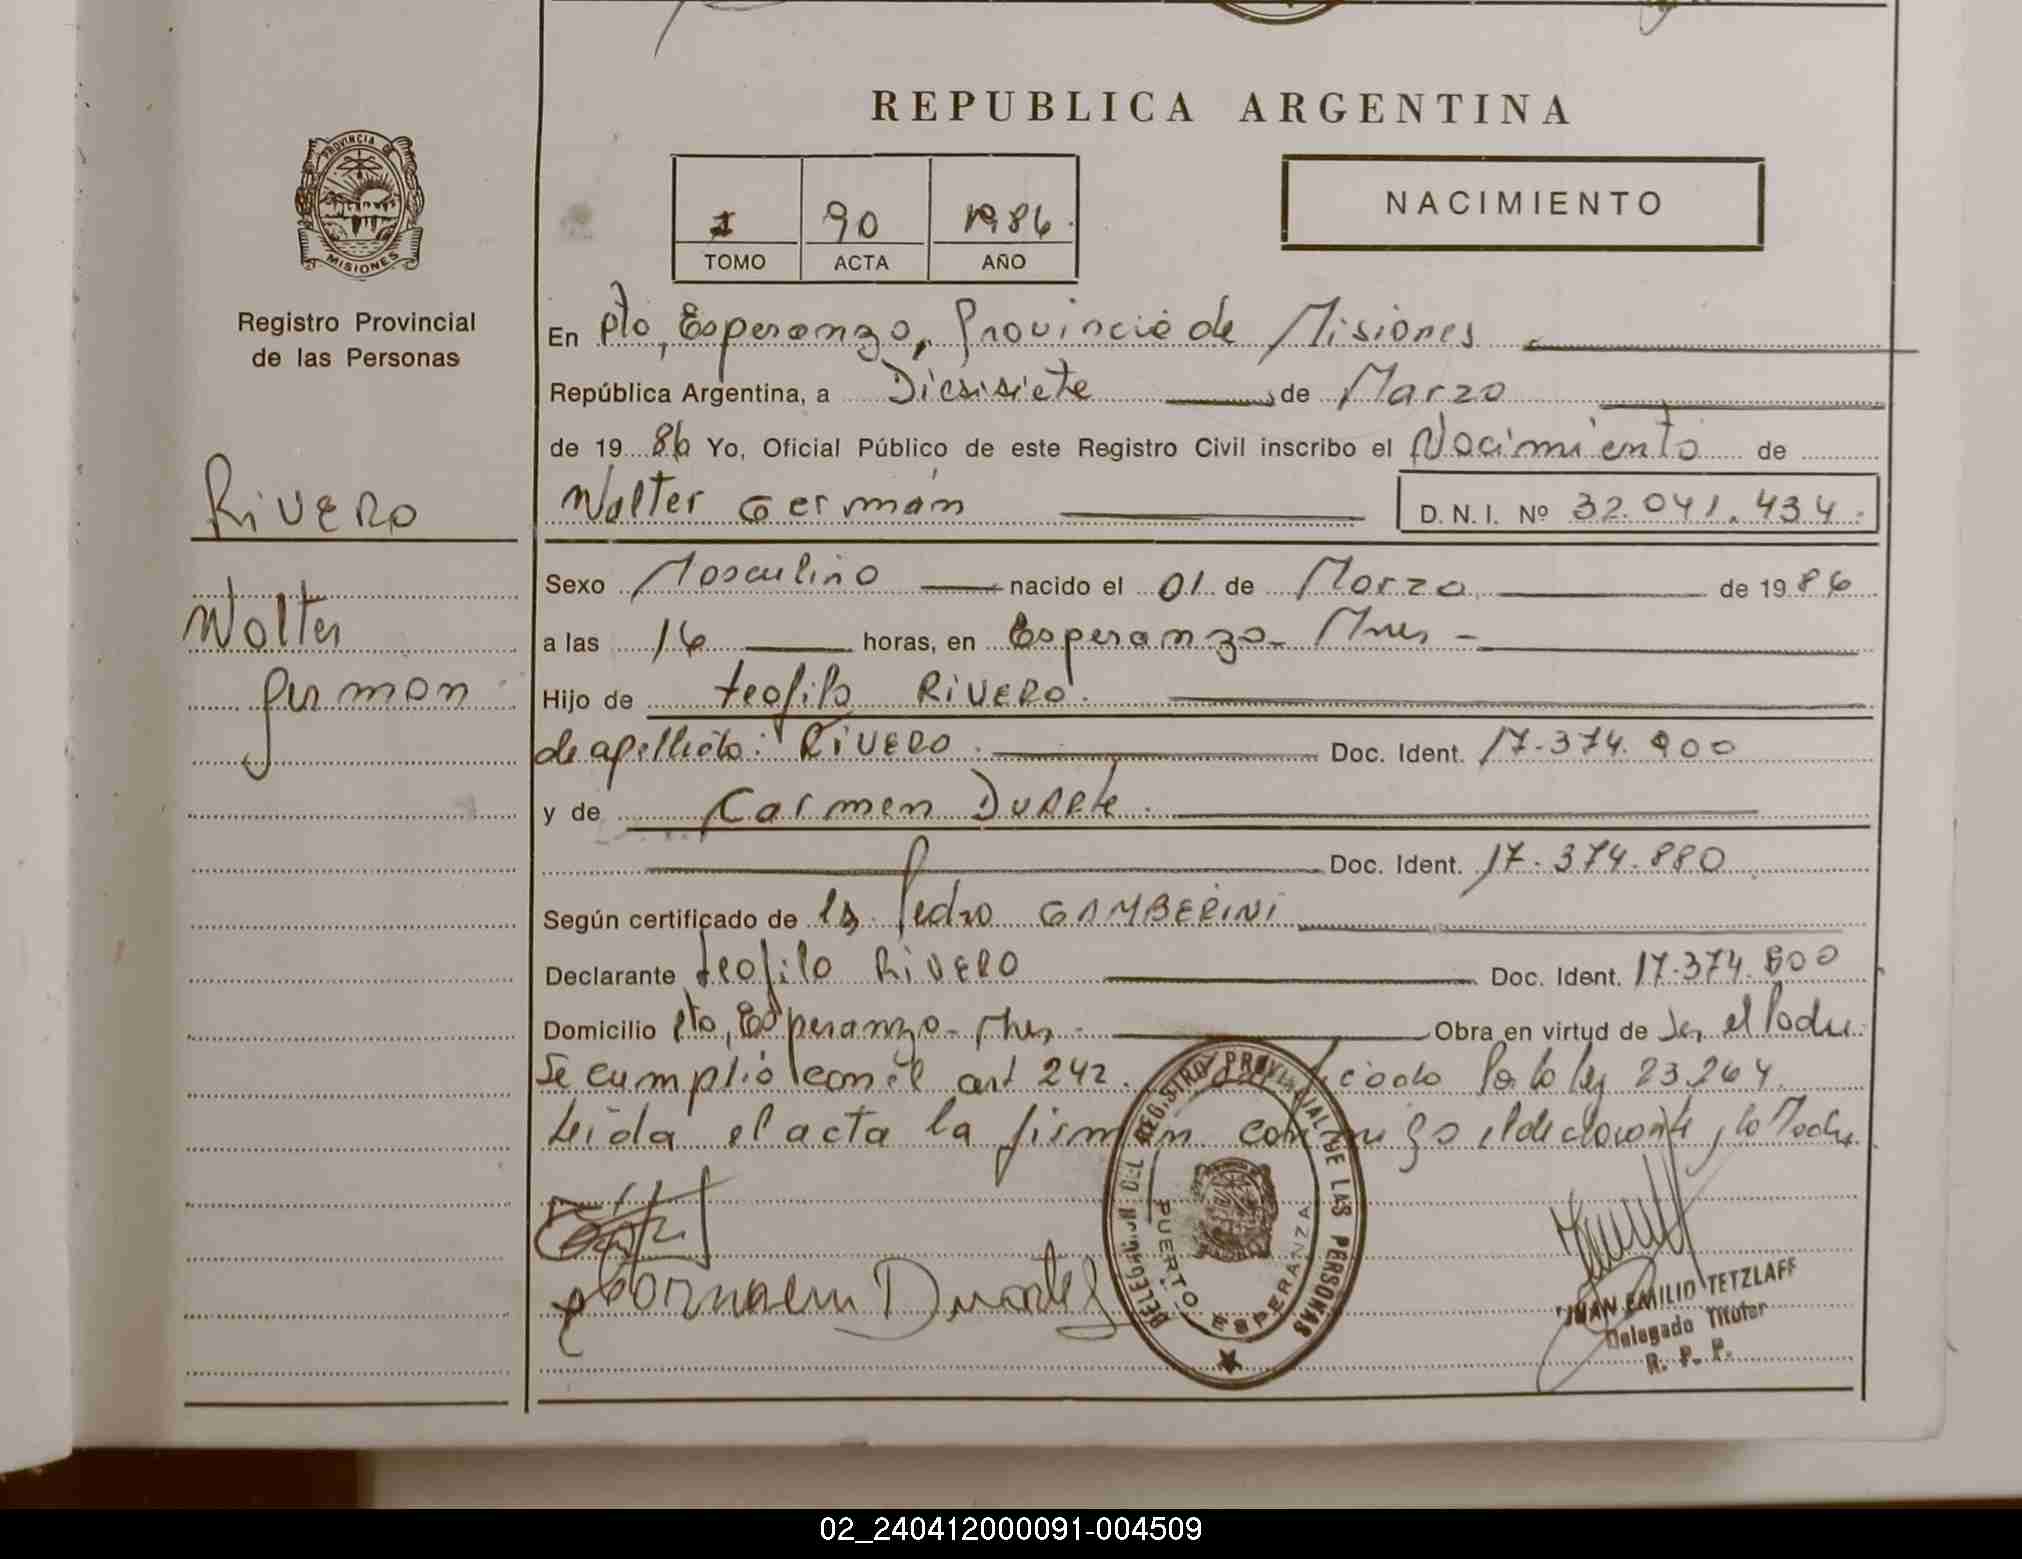 REPUBLICA ARGENTINA
PROVINCIA DE
MISIONES
Registro Provincial
de las Personas
RIVERO
Walter
German
90 1986
TOMO ACTA AÑO
NACIMIENTO
En Pto, Esperanza, Provincia de Misiones
República Argentina, a Diesisiete de Marzo
de 1986 Yo, Oficial Público de este Registro Civil inscribo el Nacimiento de
Walter Germán D. N. I. Nº 32.041.434.
Sexo Masculino nacido el 01 de Marzo de 1986
a las 16 horas, en Esperanza - Mnes -
Hijo de teofilo RIVERO.
de apellido: RIVERO. Doc. Ident. 17.374.900
y de Carmen DUARte.
Doc. Ident. 17.374.880
Según certificado de Pedro GAMBERINI
Declarante teofilo RIVERO Doc. Ident. 17.374.900
Domicilio Pto, Esperanza - Mnes - Obra en virtud de Ser el Padre.
Se cumplió con el art 242. Por la ley 23.264.
Leída el acta la firman conmigo el declarante y la Madre.
DELEGACION DEL REGISTRO PROVINCIAL DE LAS PERSONAS
PUERTO ESPERANZA
JUAN EMILIO TETZLAFF
Delegado Titular
R. P. P.
02_240412000091-004509